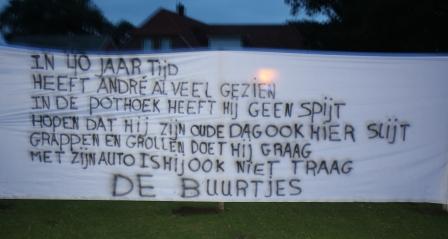 IN 40 JAAR TIJD
HEEFT ANDRÉ AL VEEL GEZIEN
IN DE POTHOEK HEEFT HIJ GEEN SPIJT
HOPEN DAT HIJ ZIJN OUDE DAG OOK HIER SLIJT
GRAPPEN EN GROLLEN DOET HIJ GRAAG
MET ZIJN AUTO IS HIJ OOK NIET TRAAG
DE BUURTJES